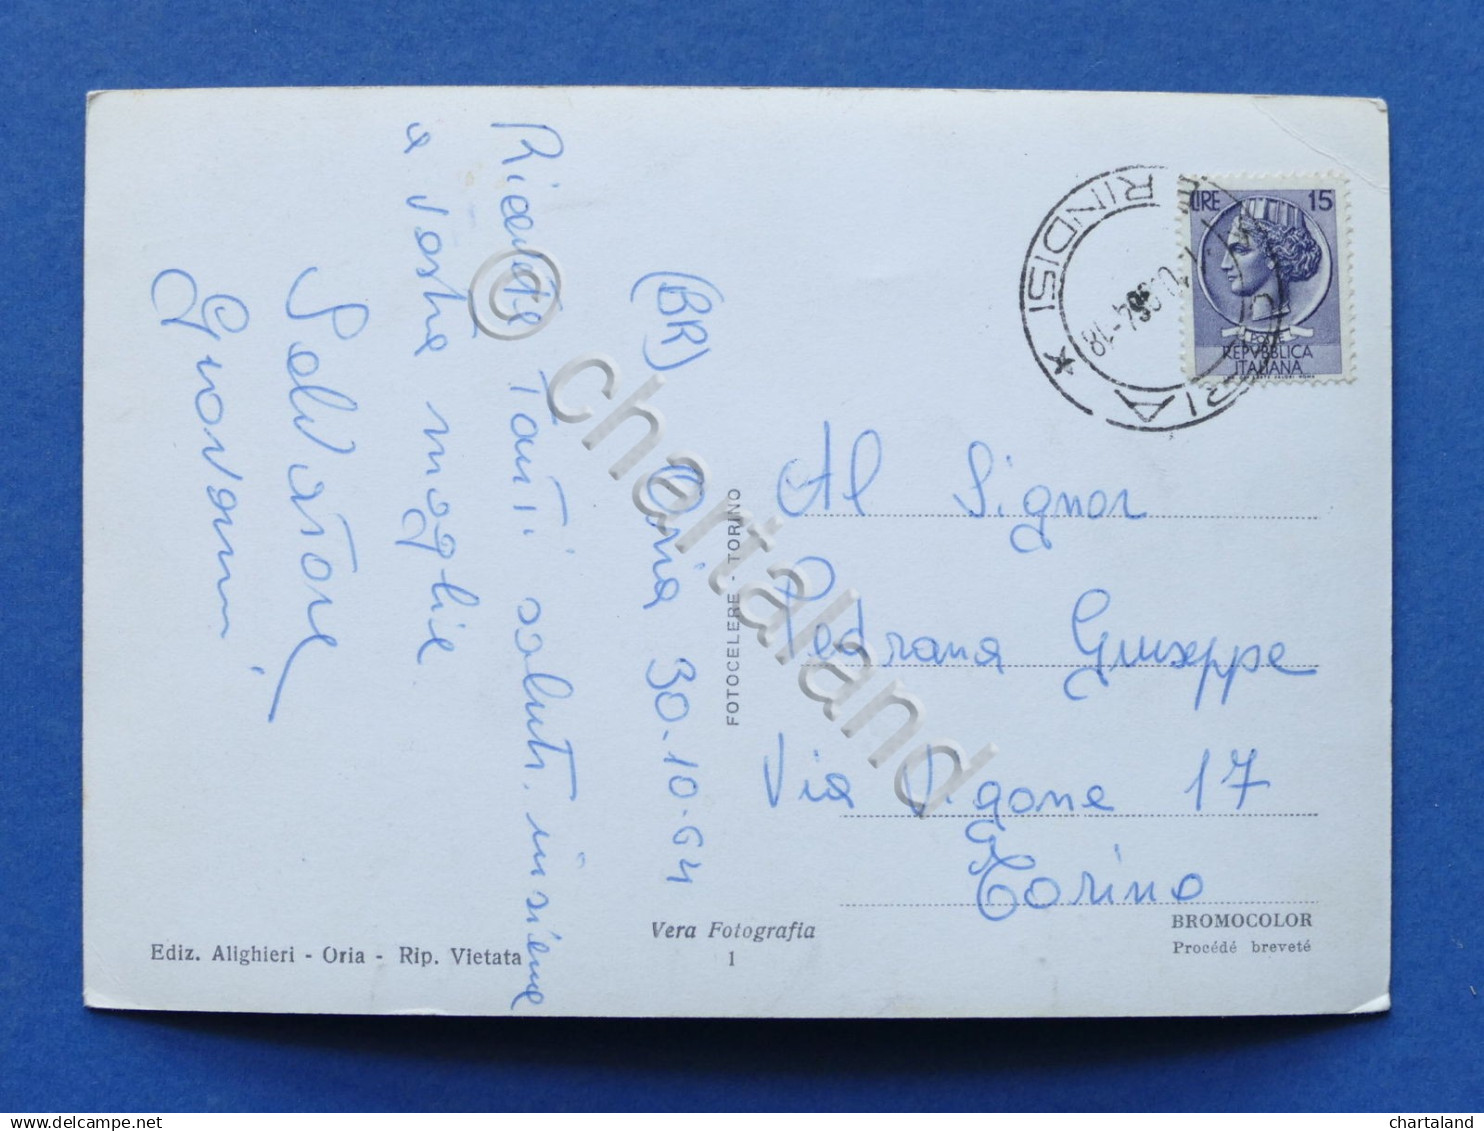 (BR)
Oria 30.10.64
Ricevete Tanti saluti insieme
a vostra moglie
Salvatore
Giovanni
Al Signor
Pedrana Giuseppe
Via Vigone 17
Torino
LIRE 15
POSTE
REPVBBLICA
ITALIANA
ORIA * BRINDISI
1964-18
FOTOCELERE - TORINO
Vera Fotografia
1
Ediz. Alighieri - Oria - Rip. Vietata
BROMOCOLOR
Procédé breveté
© chartaland
delcampe.net
chartaland